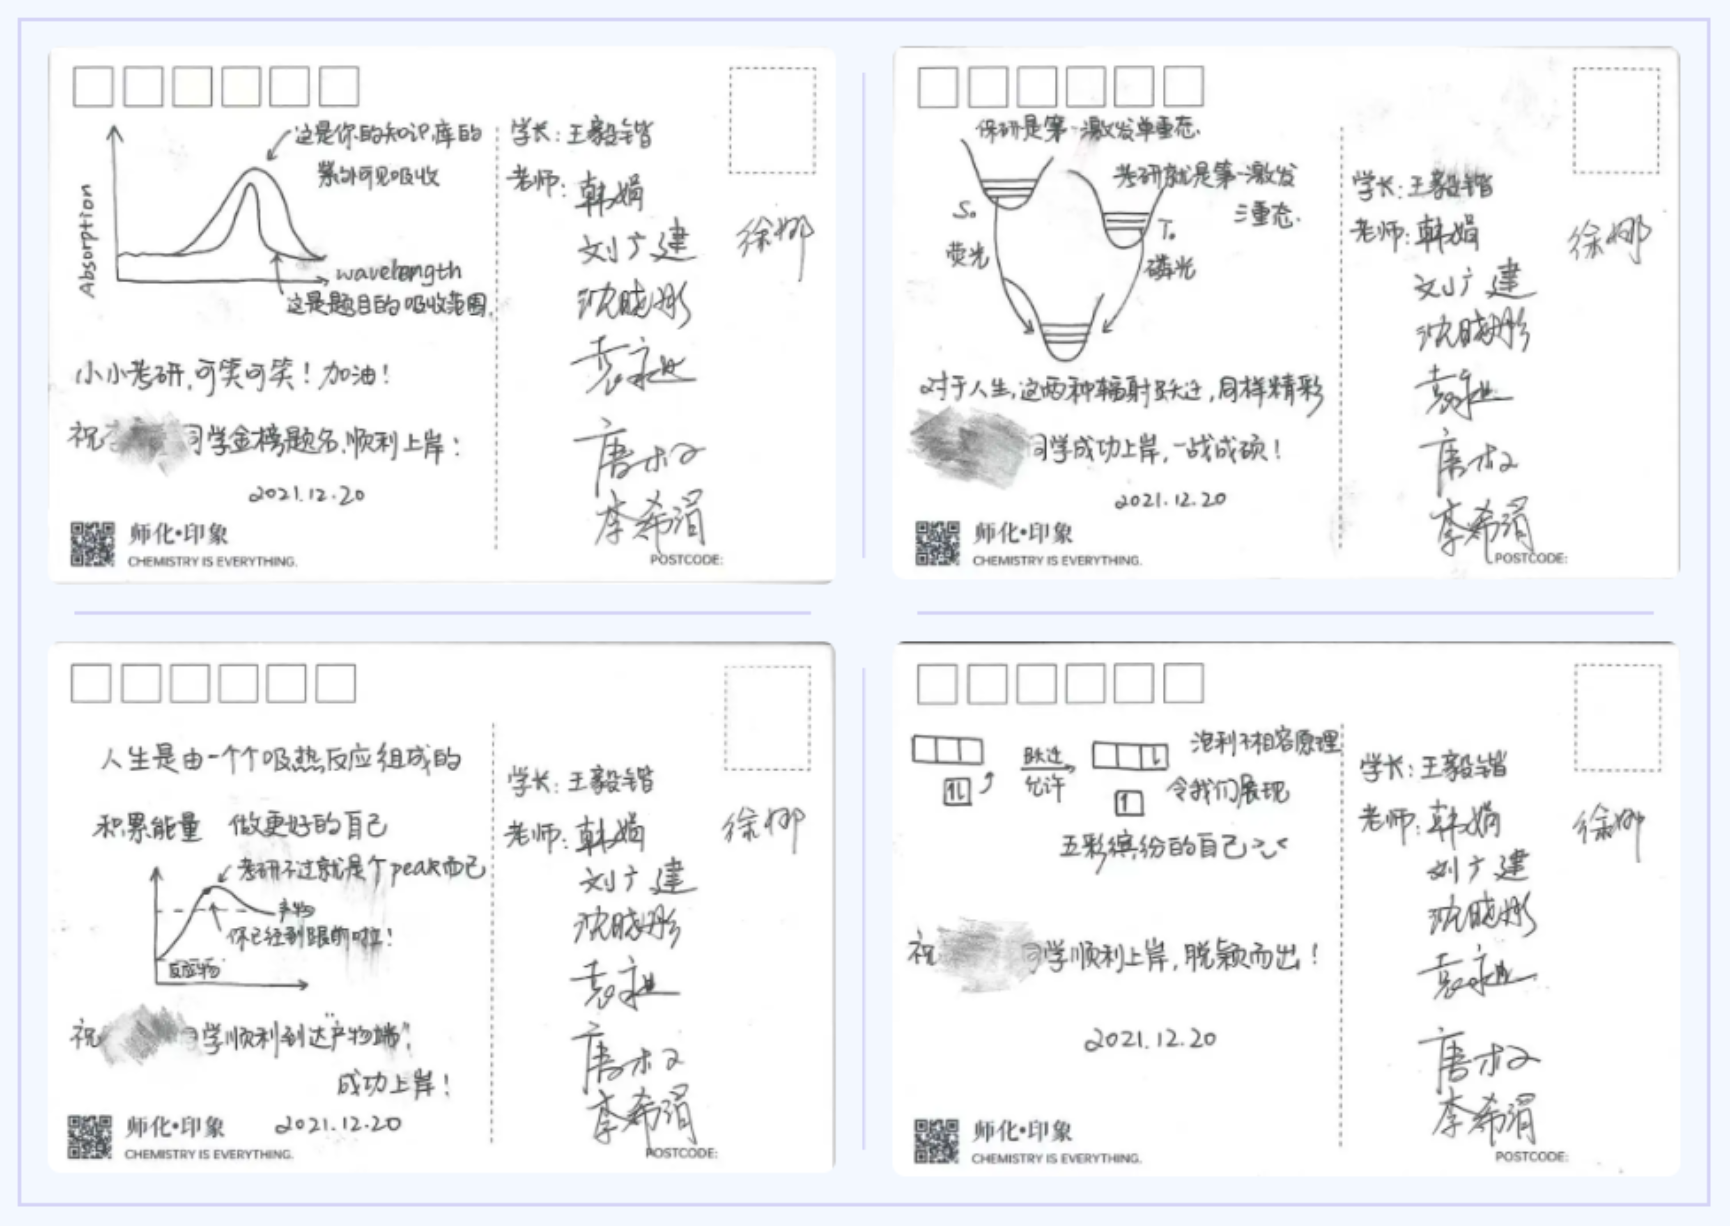 这是你的知识库的
紫外可见吸收
Absorption
wavelength
这是题目的吸收范围.
小小考研,可笑可笑!加油!
祝
同学金榜题名,顺利上岸!
2021.12.20
师化•印象
CHEMISTRY IS EVERYTHING.
学长:王毅锴
老师:韩娟
徐娜
刘广建
沈晓彤
李希涓
POSTCODE:
保研是第一激发单重态.
考研就是第一激发
三重态.
S₀
T₀
荧光
磷光
对于人生,这两种辐射跃迁,同样精彩
同学成功上岸,一战成硕!
2021.12.20
师化•印象
CHEMISTRY IS EVERYTHING.
学长:王毅锴
老师:韩娟
徐娜
刘广建
沈晓彤
李希涓
POSTCODE:
人生是由一个个吸热反应组成的
积累能量 做更好的自己
考研不过就是个peak而已
产物
你已经到跟前啦!
反应物
祝
同学顺利到达"产物端",
成功上岸!
2021.12.20
师化•印象
CHEMISTRY IS EVERYTHING.
学长:王毅锴
老师:韩娟
徐娜
刘广建
沈晓彤
李希涓
POSTCODE:
跃迁
允许
泡利不相容原理
令我们展现
五彩缤纷的自己
祝
同学顺利上岸,脱颖而出!
2021.12.20
师化•印象
CHEMISTRY IS EVERYTHING.
学长:王毅锴
老师:韩娟
徐娜
刘广建
沈晓彤
李希涓
POSTCODE: